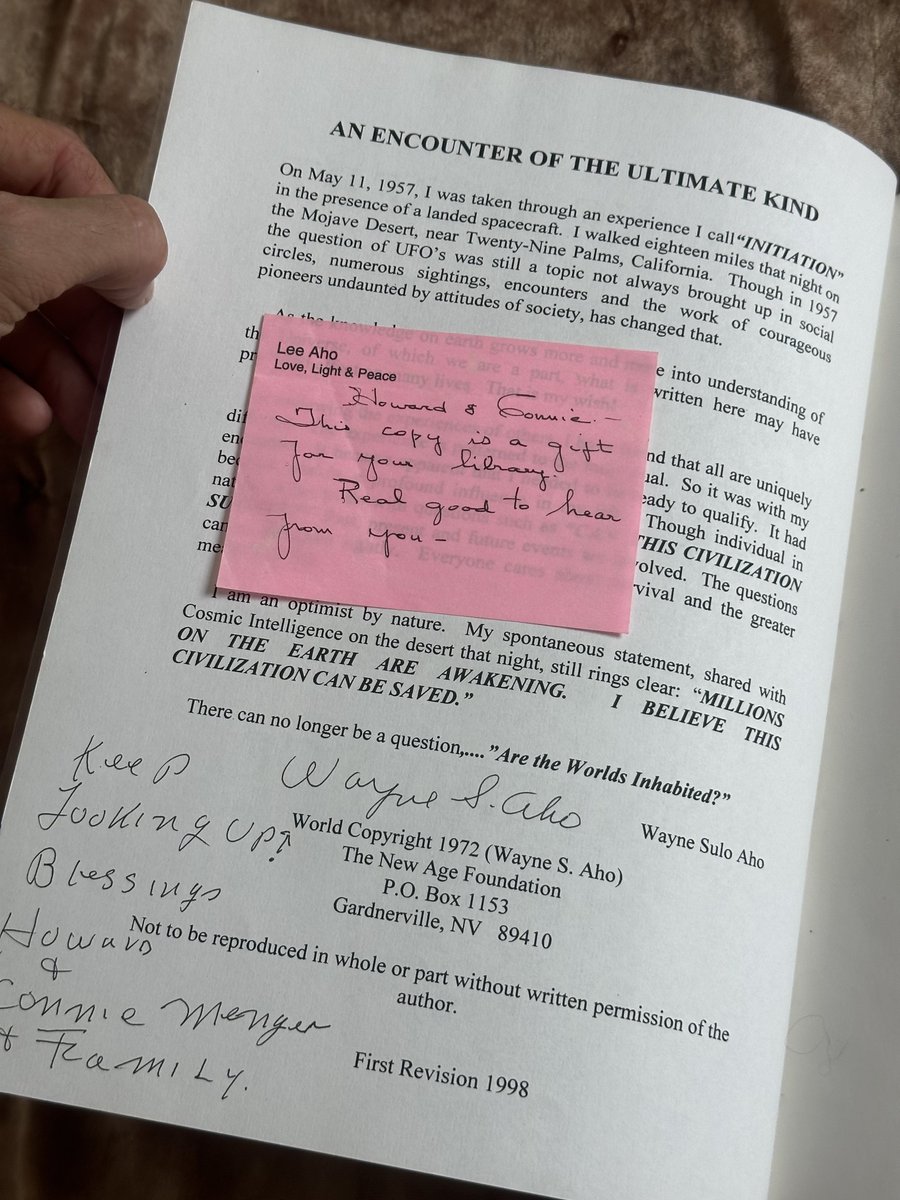 AN ENCOUNTER OF THE ULTIMATE KIND
On May 11, 1957, I was taken through an experience I call "INITIATION"
in the presence of a landed spacecraft. I walked eighteen miles that night on
the Mojave Desert, near Twenty-Nine Palms, California. Though in 1957
the question of UFO's was still a topic not always brought up in social
circles, numerous sightings, encounters and the work of courageous
pioneers undaunted by attitudes of society, has changed that.
As the knowledge on earth grows more and more into understanding of
of which we are a part, what is written here may have
many lives. That is my wish.
Lee Aho
Love, Light & Peace
Howard & Connie -
This copy is a gift
for your library.
Real good to hear
from you -
and that all are uniquely
So it was with my
ready to qualify. It had
Though individual in
THIS CIVILIZATION
The questions
and future events
and the greater
Everyone cares
I am an optimist by nature. My spontaneous statement, shared with
Cosmic Intelligence on the desert that night, still rings clear: "MILLIONS
ON THE EARTH ARE AWAKENING. I BELIEVE THIS
CIVILIZATION CAN BE SAVED."
There can no longer be a question,.... "Are the Worlds Inhabited?"
Wayne S. Aho
Wayne Sulo Aho
World Copyright 1972 (Wayne S. Aho)
The New Age Foundation
P.O. Box 1153
Gardnerville, NV 89410
Not to be reproduced in whole or part without written permission of the
author.
First Revision 1998
Keep
Looking Up!
Blessings
Howard
&
Connie Menger
& Family.